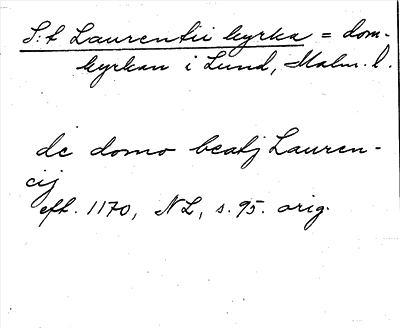 S:t Laurentii kyrka = dom-
kyrkan i Lund, Malm. l.
de domo beatj Lauren-
cij
eft. 1170, NL, s. 95. orig.